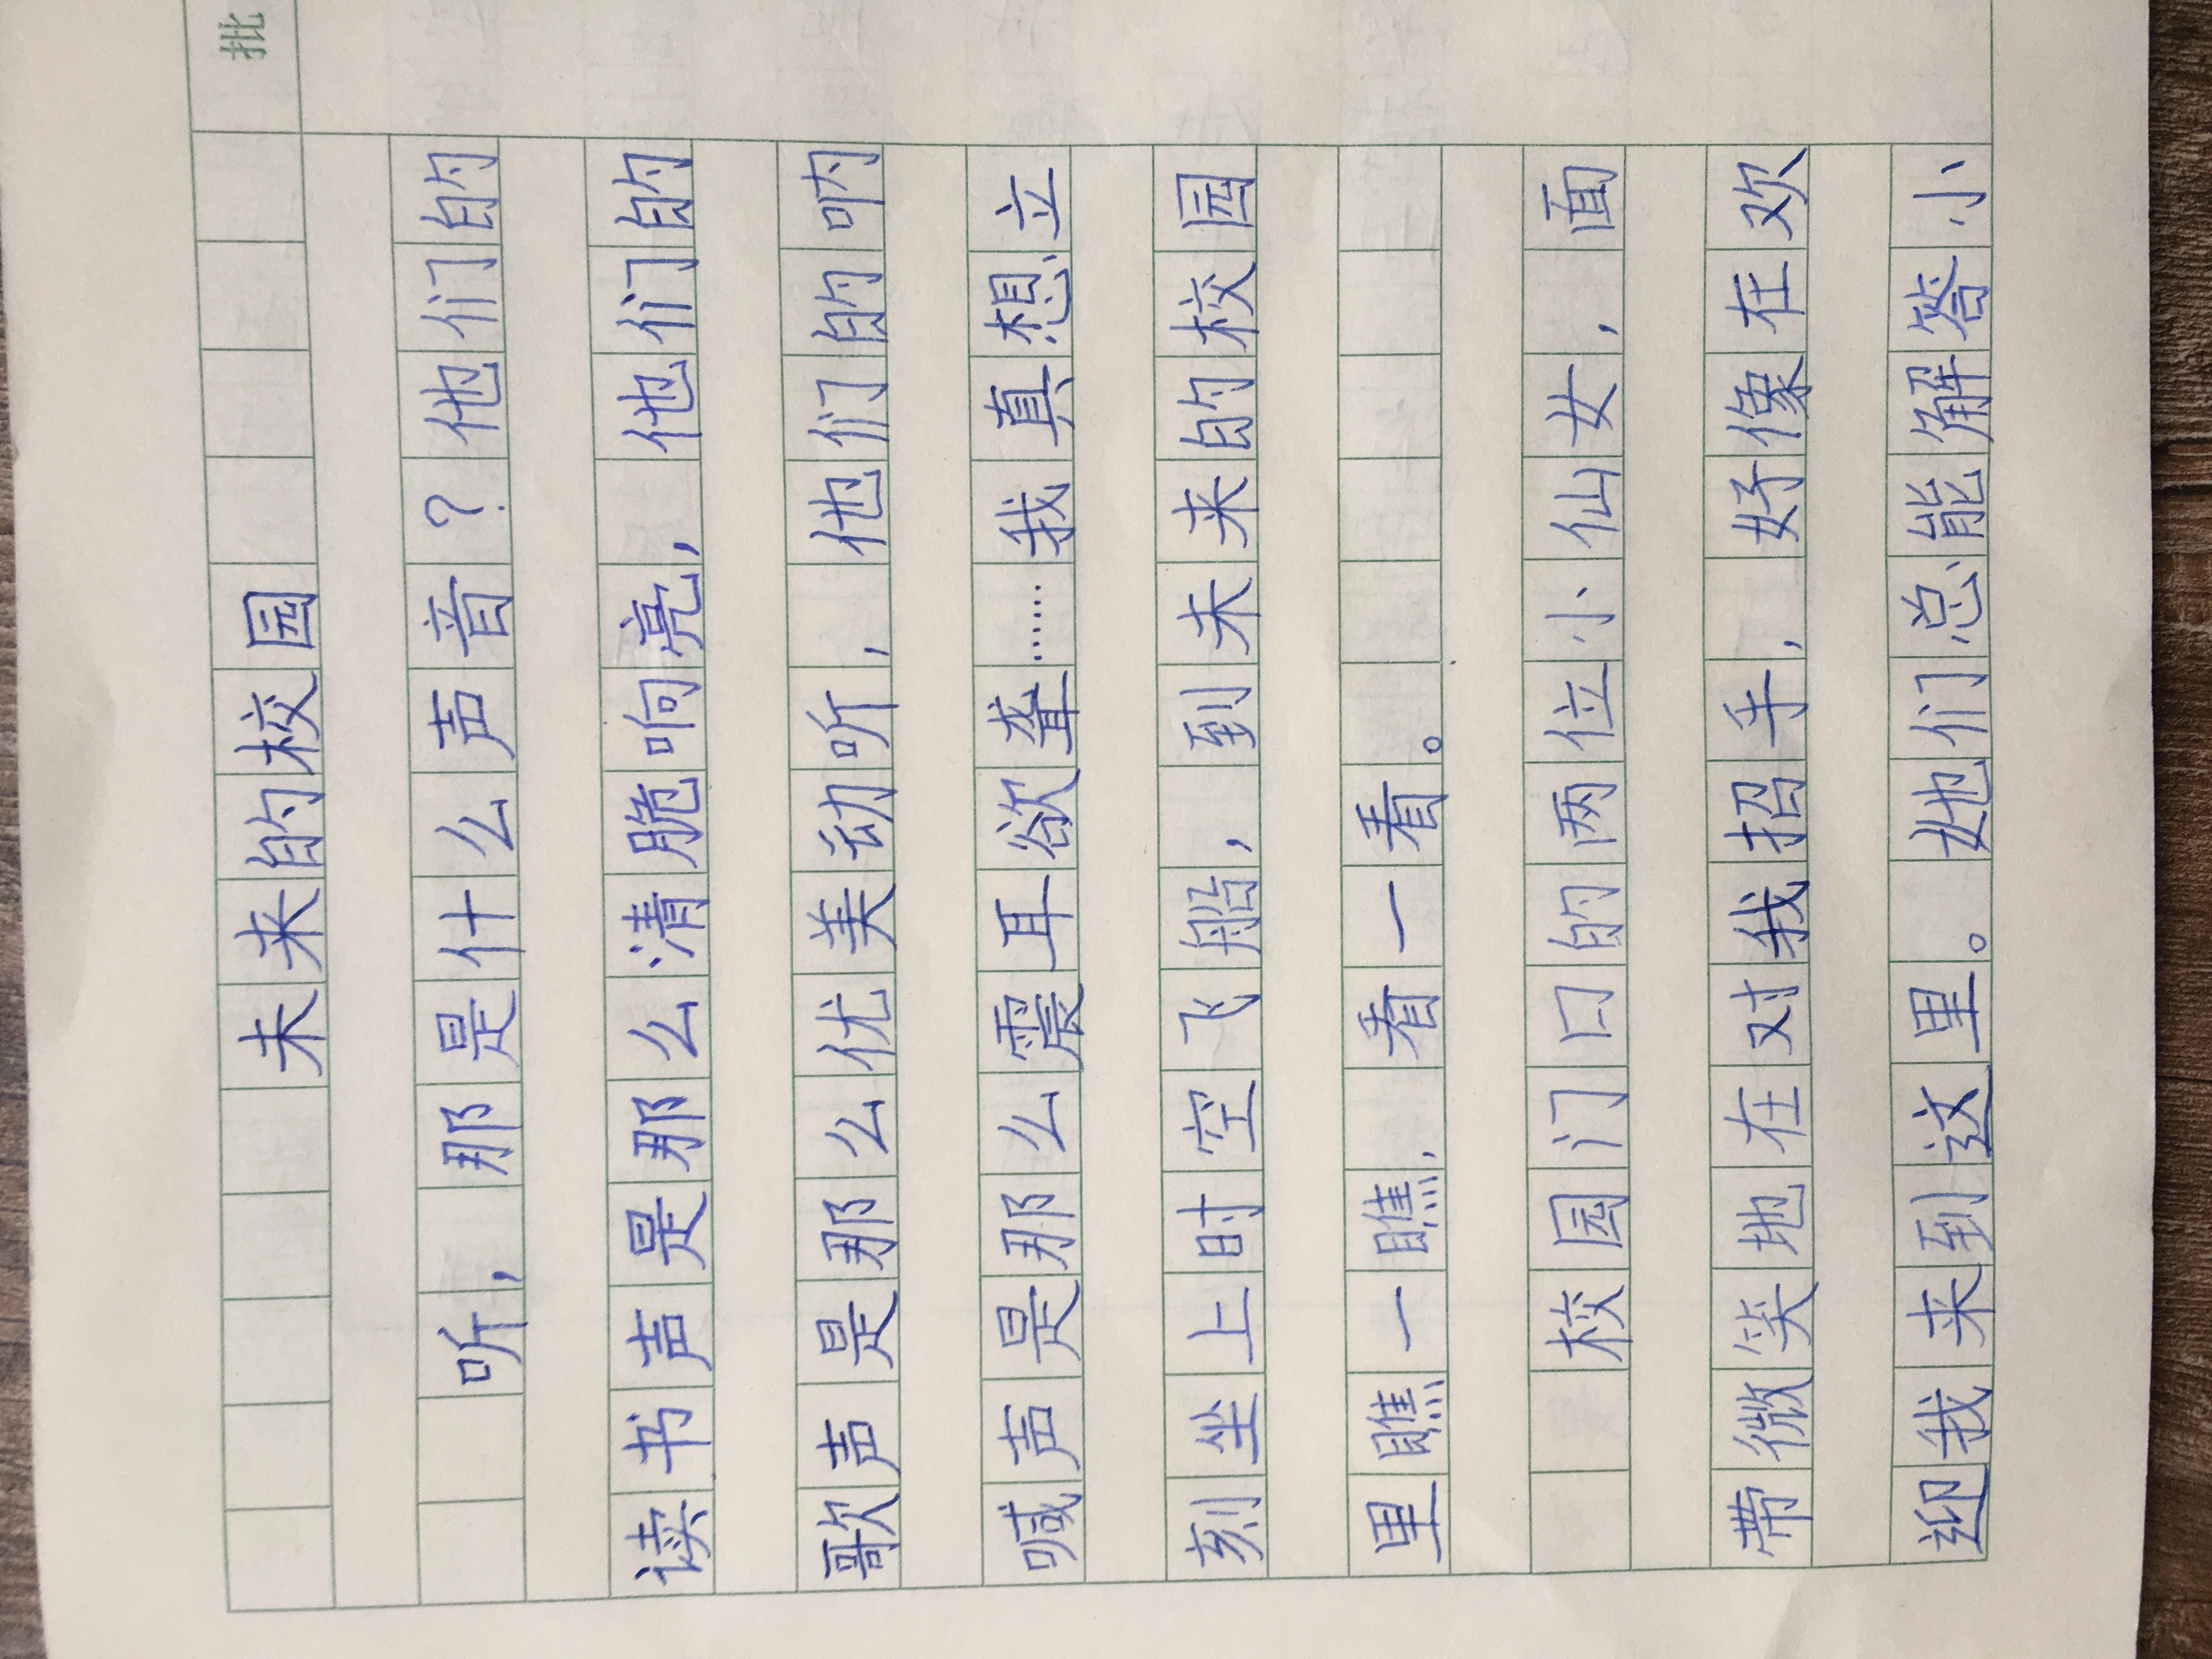 批
未来的校园
听，那是什么声音？他们的
读书声是那么清脆响亮，他们的
歌声是那么优美动听，他们的呐
喊声是那么震耳欲聋……我真想立
刻坐上时空飞船，到未来的校园
里瞧一瞧，看一看。
校园门口的两位小仙女，面
带微笑地在对我招手，好像在欢
迎我来到这里。她们总能解答小